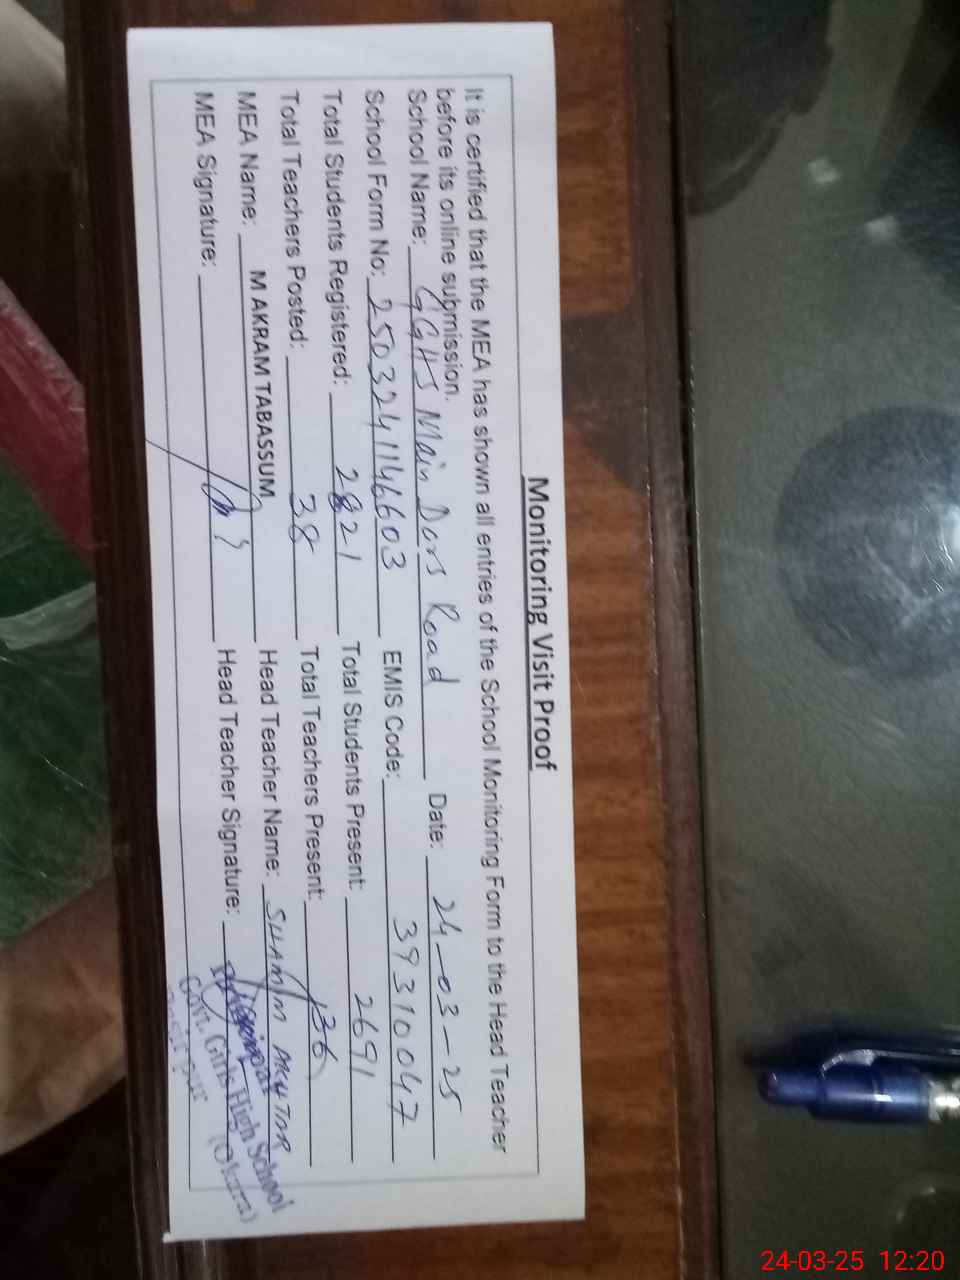 Monitoring Visit Proof
It is certified that the MEA has shown all entries of the School Monitoring Form to the Head Teacher
before its online submission.
School Name: GGHS Main Dars Road Date: 24-03-25
School Form No: 2503241146603 EMIS Code: 39310047
Total Students Registered: 2821 Total Students Present: 2691
Total Teachers Posted: 38 Total Teachers Present: 36
MEA Name: M AKRAM TABASSUM Head Teacher Name: SHAMIM AKHTAR
MEA Signature: Head Teacher Signature:
Principal
Govt. Girls High School
(Okara)
24-03-25 12:20